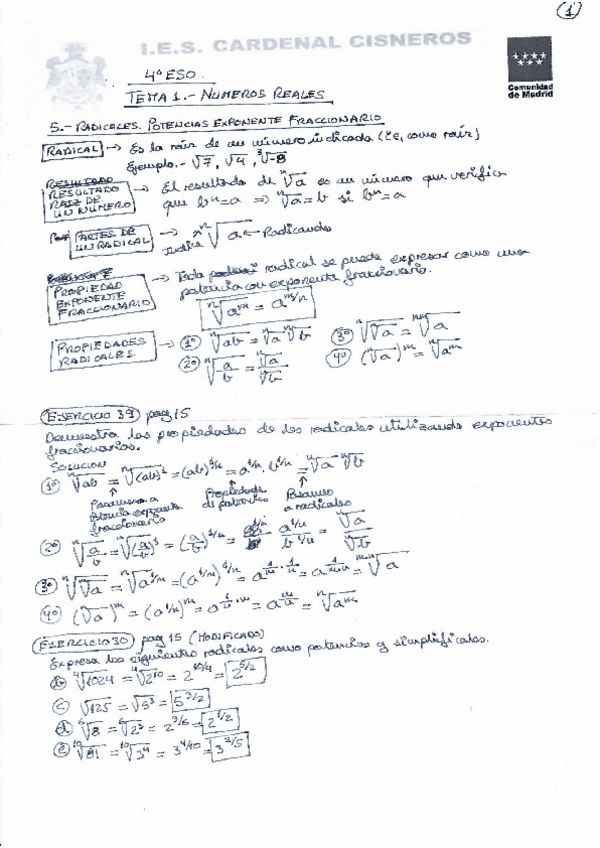 ①
I.E.S. CARDENAL CISNEROS
Comunidad de Madrid
4º ESO.
TEMA 1.- NUMEROS REALES
5.- RADICALES. POTENCIAS EXPONENTE FRACCIONARIO
RADICAL → Es la raíz de un número indicada (i.e, como raíz)
Ejemplo.- √7, √4, ³√-8
RESULTADO RAIZ DE UN NÚMERO → El resultado de ⁿ√a es un número que verifica
que bⁿ=a ⇒ ⁿ√a=b si bⁿ=a
PARTES DE UN RADICAL → Indice ⁿ√a ← Radicando
PROPIEDAD EXPONENTE FRACCIONARIO → Todo radical se puede expresar como una
potencia con exponente fraccionario.
ⁿ√aᵐ = a^(m/n)
PROPIEDADES RADICALES → 1º ⁿ√ab = ⁿ√a ⁿ√b 3º ᵐ√ⁿ√a = ᵐⁿ√a
2º ⁿ√(a/b) = ⁿ√a / ⁿ√b 4º (ⁿ√a)ᵐ = ⁿ√aᵐ
EJERCICIO 39 pag 15
Demuestra las propiedades de los radicales utilizando exponentes
fraccionarios.
SOLUCION
1º ⁿ√ab = ⁿ√(ab)¹ = (ab)^(1/n) = a^(1/n) · b^(1/n) = ⁿ√a ⁿ√b
Pasamos a exponente fraccionario Propiedad de potencias Pasamos a radicales
2º ⁿ√(a/b) = ⁿ√(a/b)¹ = (a/b)^(1/n) = a^(1/n) / b^(1/n) = ⁿ√a / ⁿ√b
3º ⁿ√ᵐ√a = ⁿ√a^(1/m) = (a^(1/m))^(1/n) = a^(1/m · 1/n) = a^(1/m·n) = ᵐ·ⁿ√a
4º (ⁿ√a)ᵐ = (a^(1/n))ᵐ = a^(1/n · m) = a^(m/n) = ⁿ√aᵐ
EJERCICIO 30 pag 15 (MODIFICADO)
Expresa los siguientes radicales como potencias y simplificalos.
b ⁴√1024 = ⁴√2¹⁰ = 2^(10/4) = 2^(5/2)
c √125 = √5³ = 5^(3/2)
d ⁶√8 = ⁶√2³ = 2^(3/6) = 2^(1/2)
e ¹⁰√81 = ¹⁰√3⁴ = 3^(4/10) = 3^(2/5)